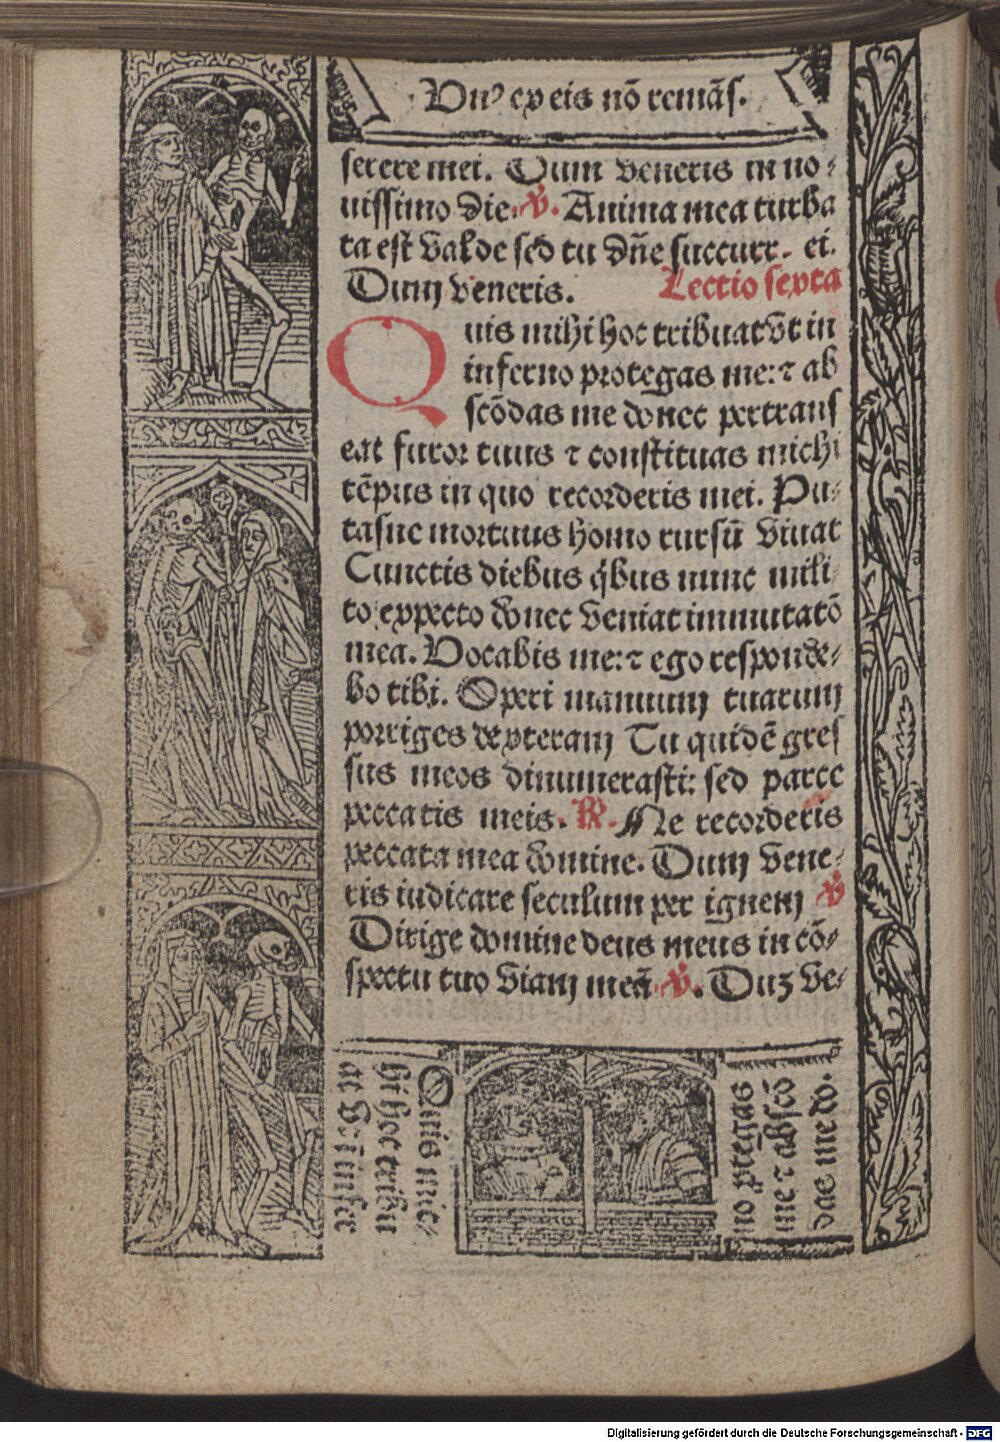 Vnꝰ ex eis nō remās.
serere mei. Dum veneris in no⸗
uissimo die. ℣. Anima mea turba
ta est valde sed tu dn̄e succurr. ei.
Dum veneris. Lectio sexta
Quis mihi hoc tribuat vt in
inferno protegas me: ⁊ ab
scōdas me donec pertrans
eat furor tuus ⁊ constituas michi
tēpus in quo recorderis mei. Pu⸗
tasne mortuus homo rursū viuat
Cunctis diebus q̇bus nunc mili⸗
to expecto donec veniat immutatō
mea. Vocabis me: ⁊ ego responde⸗
bo tibi. Operi manuum tuarum
porriges dexteram Tu quidē gres
sus meos dinumerasti: sed parce
peccatis meis. ℟. Ne recorderis
peccata mea domine. Dum vene⸗
ris iudicare seculum per ignem ℣
Dirige domine deus meus in cō⸗
spectu tuo viam meā ℣. Duz ve⸗
Quis mic⸗
hi hoc tribu
at vt in fer
no ꝓtegas
me ⁊ abscō
das me do.
Digitalisierung gefördert durch die Deutsche Forschungsgemeinschaft - DFG